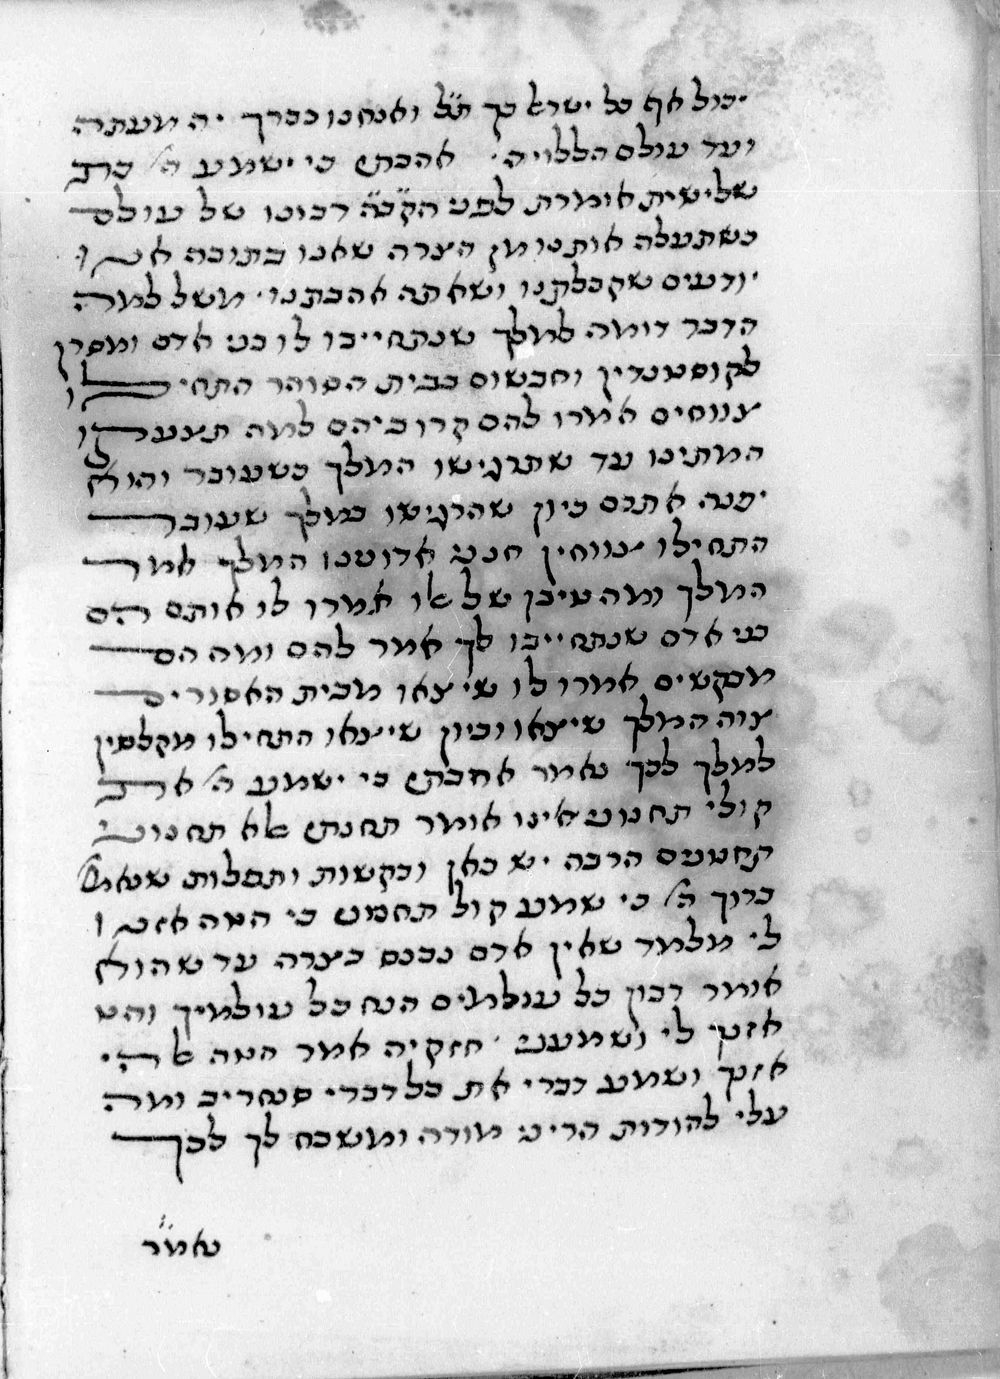 יכול אף כל ישראל כך ת״ל ואנחנו נברך יה מעתה
ועד עולם הללויה׳ אהבתי כי ישמע ה׳ כת
שלישית אומרת לפני הק״בה רבונו של עולם
כשתעלה אותנו מן הצרה שאנו בתוכה אנו
יודעים שקבלתנו ושאתה אהבתנו׳ משל למה
הדבר דומה למלך שנתחייבו לו בני אדם ומסרן
לקוסטנרין וחבשום בבית הסוהר התחילו
צווחים אמרו להם קרוביהם למה תצעקו
המתינו עד שתרגישו המלך כשעובר והוא
יפנה אתכם כיון שהרגישו במלך שעובר
התחילו צווחין חננו אדוננו המלך אמר
המלך ומה טיבן של אלו אמרו לו אותם הם
בני אדם שנתחייבו לך אמר להם ומה הם
מבקשים אמרו לו שיצאו מבית האסורים
צוה המלך שיצאו וכיון שיצאו התחילו מקלסין
למלך לכך נאמר אהבתי כי ישמע ה׳ את
קולי תחנוני אינו אומר תחנתי אלא תחנוני
תחנונים הרבה יש כאן ובקשות ותפלות שנאמ׳
ברוך ה׳ כי שמע קול תחנוני כי הטה אזנו
לי מלמד שאין אדם נכנס בצרה עד שהוא
אומר רבון כל עולמים הנח כל עולמיך והט
אזנך לי ושמעני׳ חזקיה אמר הטה אלהי
אזנך ושמע דברי את כל דברי סנחריב ומה
עלי להודות הריני מודה ומשבח לך לכך
נאמ״ר